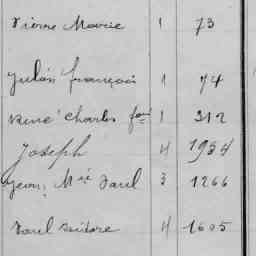 Pierre Marie 1 73
Julien François 1 74
René Charles 1 312
Joseph 4 1954
Jean Mie Paul 3 1266
Paul Isidore 4 1605